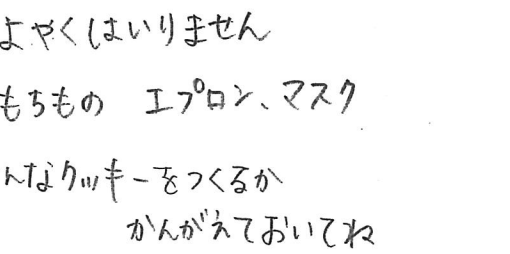 よやくはいりません
もちもの　エプロン、マスク
んなクッキーをつくるか
かんがえておいてね